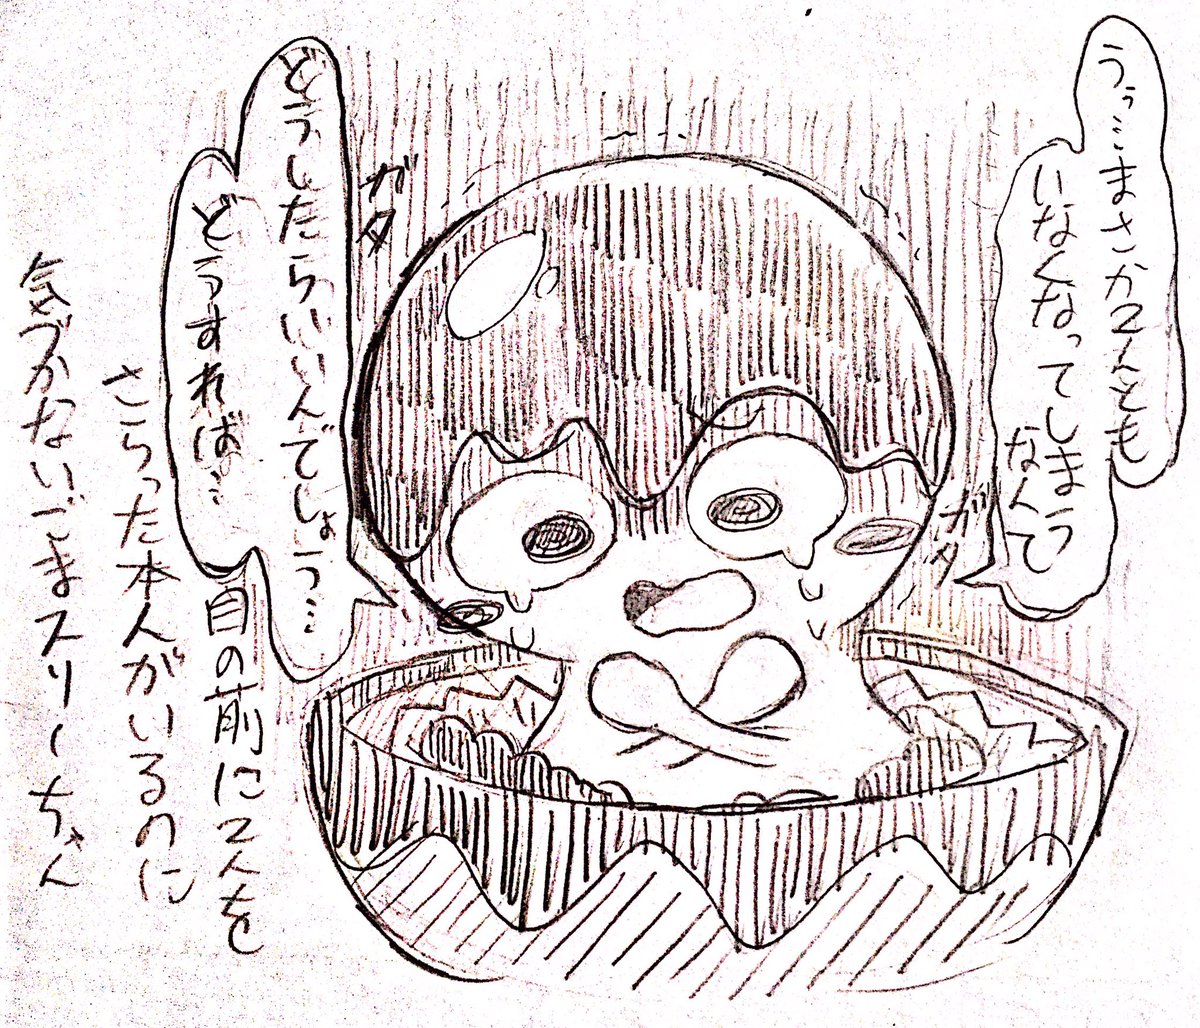 うぅ…まさか2人とも
いなくなってしまう
なんて
ガタ
ガタ
どうしたらいいんでしょう…
どうすれば…
目の前に2人を
さらった本人がいるのに
気づかないごまスリーちゃん